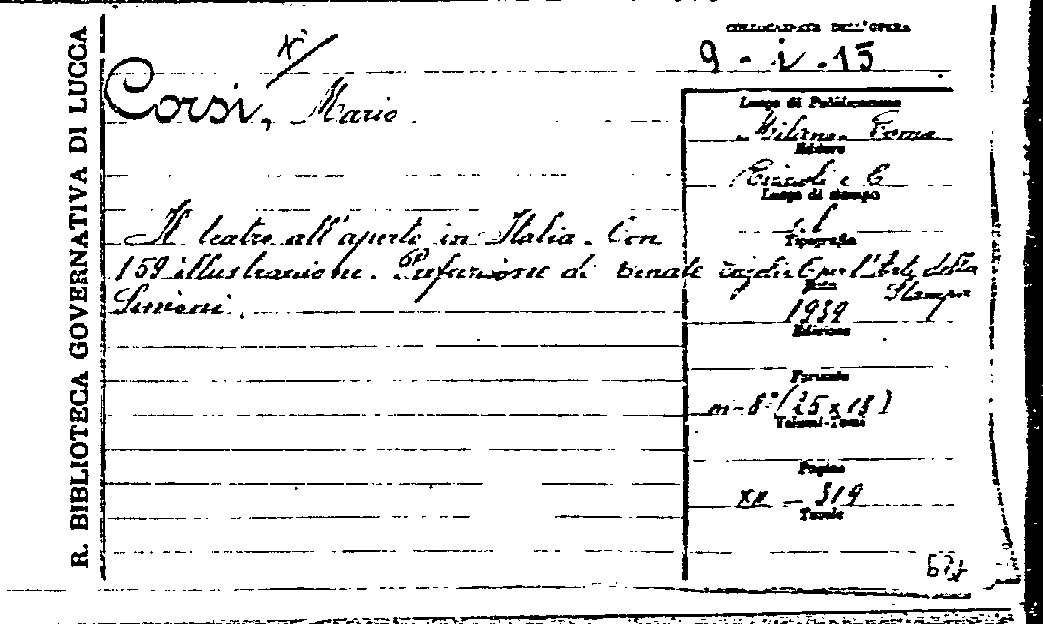 R. BIBLIOTECA GOVERNATIVA DI LUCCA
COLLOCAZIONE DELL'OPERA
9 - i - 15
Corsi, Mario
Luogo di Pubblicazione
Milano - Roma
Editore
Rizzoli e C
Luogo di stampo
s. l.
Tipografia
Il teatro all'aperto in Italia. Con
159 illustrazioni. Prefazione di Renato
Simoni.
per l'Arte della
Stampa
1939
Edizione
Formato
in-8° (25 x 18)
Volumi-Tomi
Pagine
XX - 319
Tavole